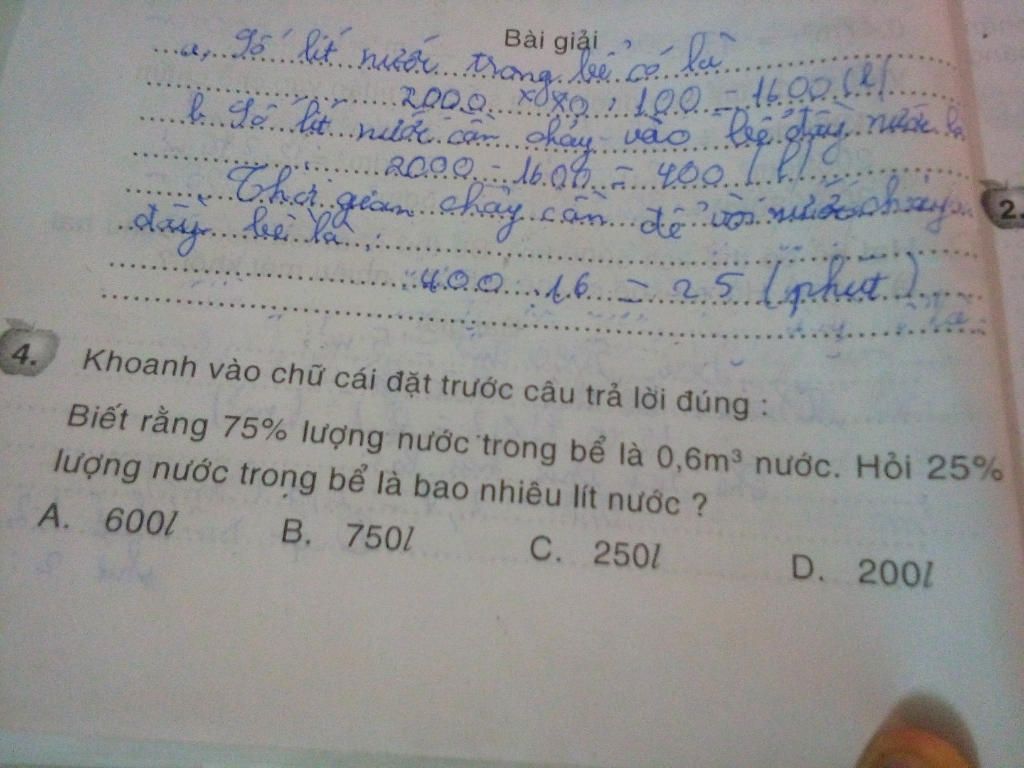 Bài giải
a, Số lít nước trong bể có là
2000 x 80 : 100 = 1600 (l)
b. Số lít nước cần chảy vào bể đầy nước là
2000 - 1600 = 400 (l)
Thời gian chảy cần để vòi nước chảy
đầy bể là :
400 : 16 = 25 (phút)
4. Khoanh vào chữ cái đặt trước câu trả lời đúng :
Biết rằng 75% lượng nước trong bể là 0,6m³ nước. Hỏi 25%
lượng nước trong bể là bao nhiêu lít nước ?
A. 600l B. 750l C. 250l D. 200l
2.